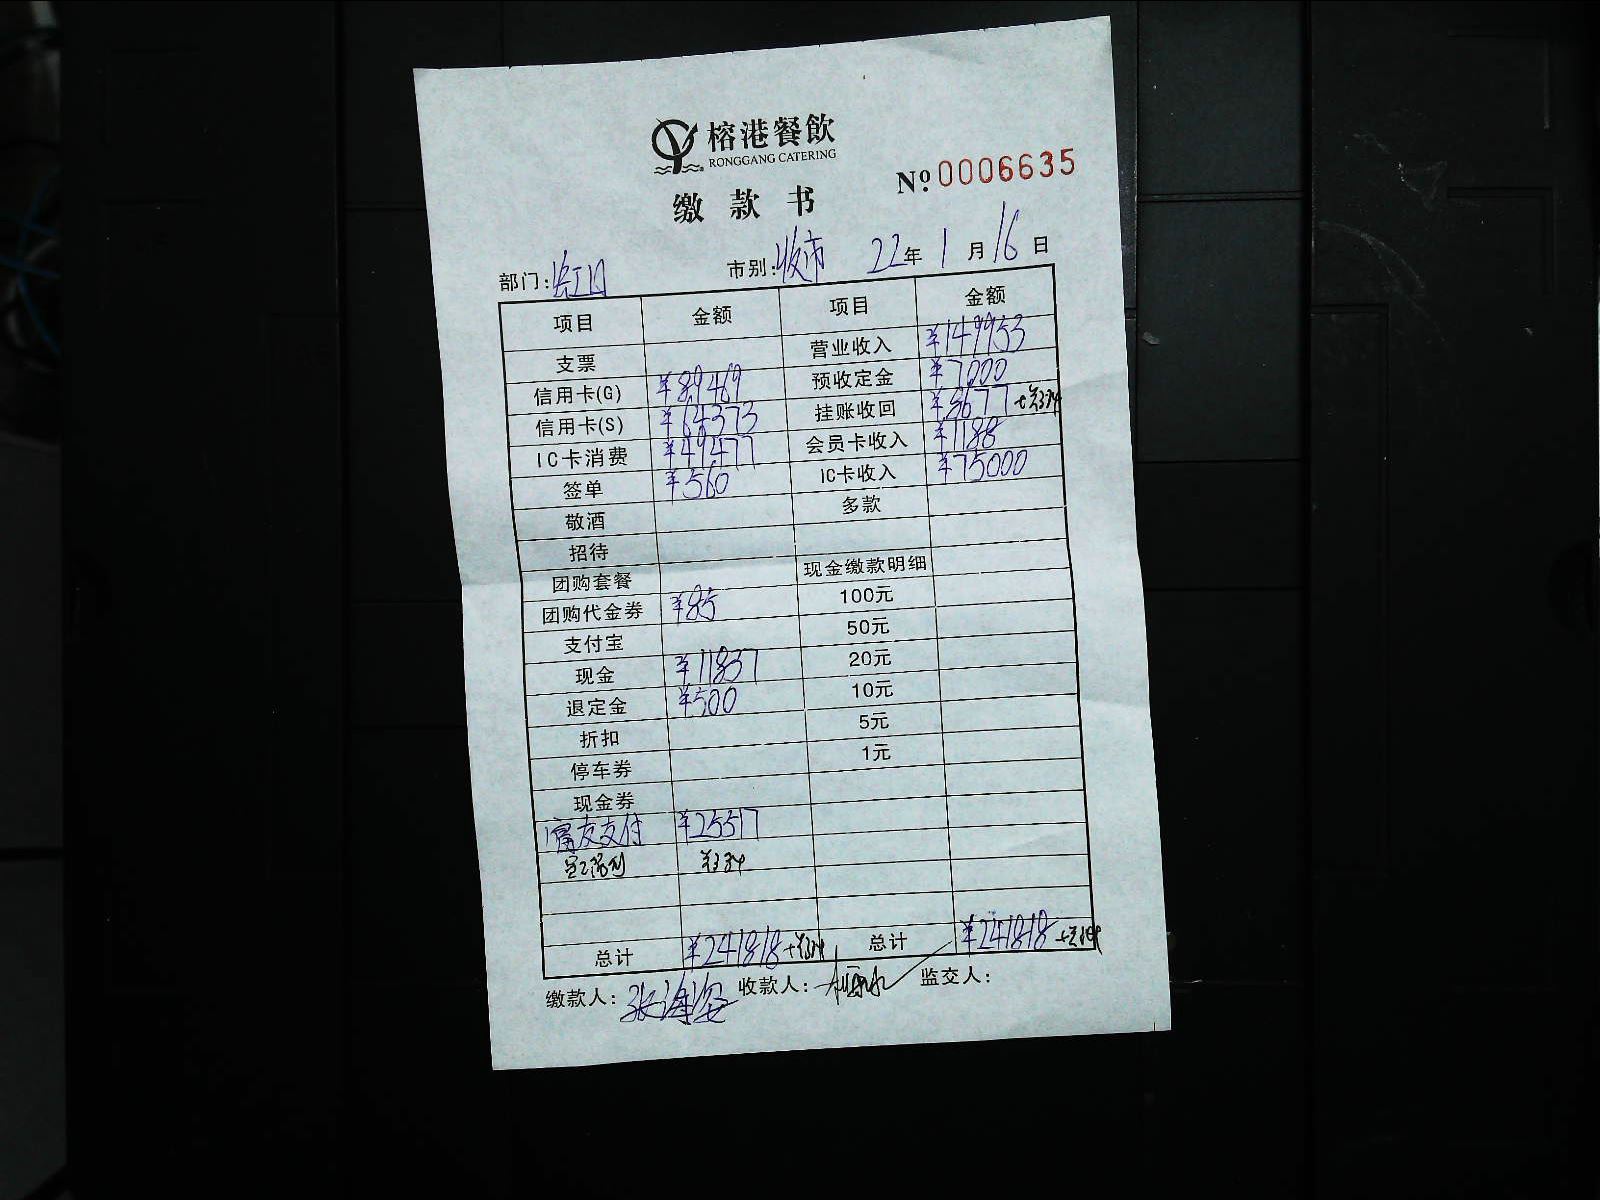 榕港餐飲
RONGGANG CATERING
缴款书
Nº 0006635
部门: 市别: 收市 22年 1月 16日
项目 金额 项目 金额
支票 营业收入 ¥149953
信用卡(G) ¥89469 预收定金 ¥7000
信用卡(S) ¥64373 挂账收回 ¥8677
IC卡消费 ¥49477 会员卡收入 ¥1188
签单 ¥560 IC卡收入 ¥75000
敬酒 多款
招待
团购套餐 现金缴款明细
团购代金券 ¥85 100元
支付宝 50元
现金 ¥11837 20元
退定金 ¥500 10元
折扣 5元
停车券 1元
现金券
富友支付 ¥25517
总计 ¥241818 总计 ¥241818
缴款人: 张海 收款人: 监交人: